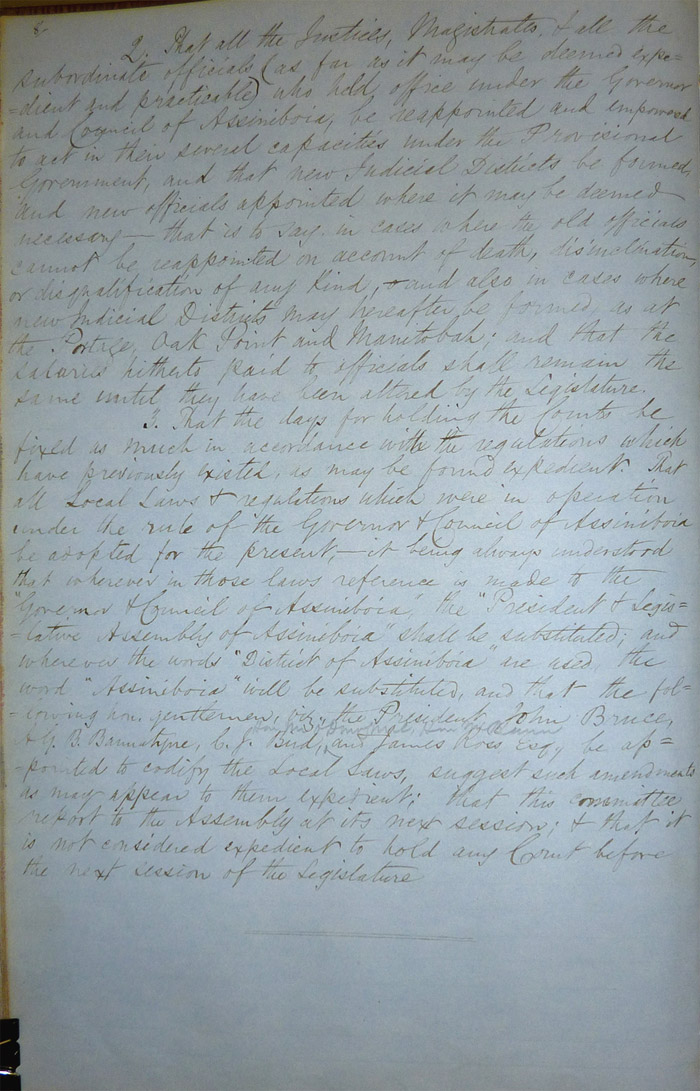 8
2. That all the Justices, Magistrates, & all the
subordinate officials (as far as it may be deemed expe=
=dient and practicable) who held office under the Governor
and Council of Assiniboia, be reappointed and empowered
to act in their several capacities under the Provisional
Government, and that new Judicial Districts be formed,
and new officials appointed where it may be deemed
necessary — that is to say in cases where the old officials
cannot be reappointed on account of death, disinclination,
or disqualification of any kind, & and also in cases where
new Judicial Districts may hereafter be formed, as at
the Portage, Oak Point and Manitobah; and that the
salaries hitherto paid to officials shall remain the
same until they have been altered by the Legislature.
3. That the days for holding the Courts be
fixed as much in accordance with the regulations which
have previously existed, as may be found expedient. That
all Local Laws & regulations which were in operation
under the rule of the Governor & Council of Assiniboia
be adopted for the present, — it being always understood
that wherever in those laws reference is made to the
"Governor & Council of Assiniboia", the "President & Legis=
=lative Assembly of Assiniboia" shall be substituted; and
wherever the words "District of Assiniboia" are used, the
word "Assiniboia" will be substituted, and that the fol=
=lowing hon. gentlemen, viz., the President, John Bruce,
A. G. B. Bannatyne, C. J. Bird, and James Ross Esq., be ap=
=pointed to codify the Local Laws, suggest such amendments
as may appear to them expedient; that this committee
report to the Assembly at its next session; & that it
is not considered expedient to hold any Court before
the next session of the Legislature